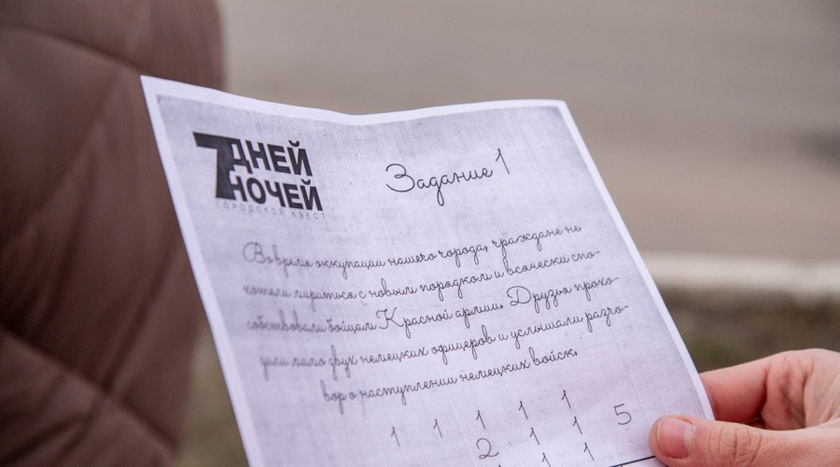 7 ДНЕЙ
НОЧЕЙ
ГОРОДСКОЙ КВЕСТ
Задание 1
Во время оккупации нашего города, граждане не
хотели мириться с новым порядком и всячески спо-
собствовали бойцам Красной армии. Друзья прохо-
дили мимо двух немецких офицеров и услышали разго-
вор о наступлении немецких войск.
1 1 1 1 1
2 1 1 5
1 1 1